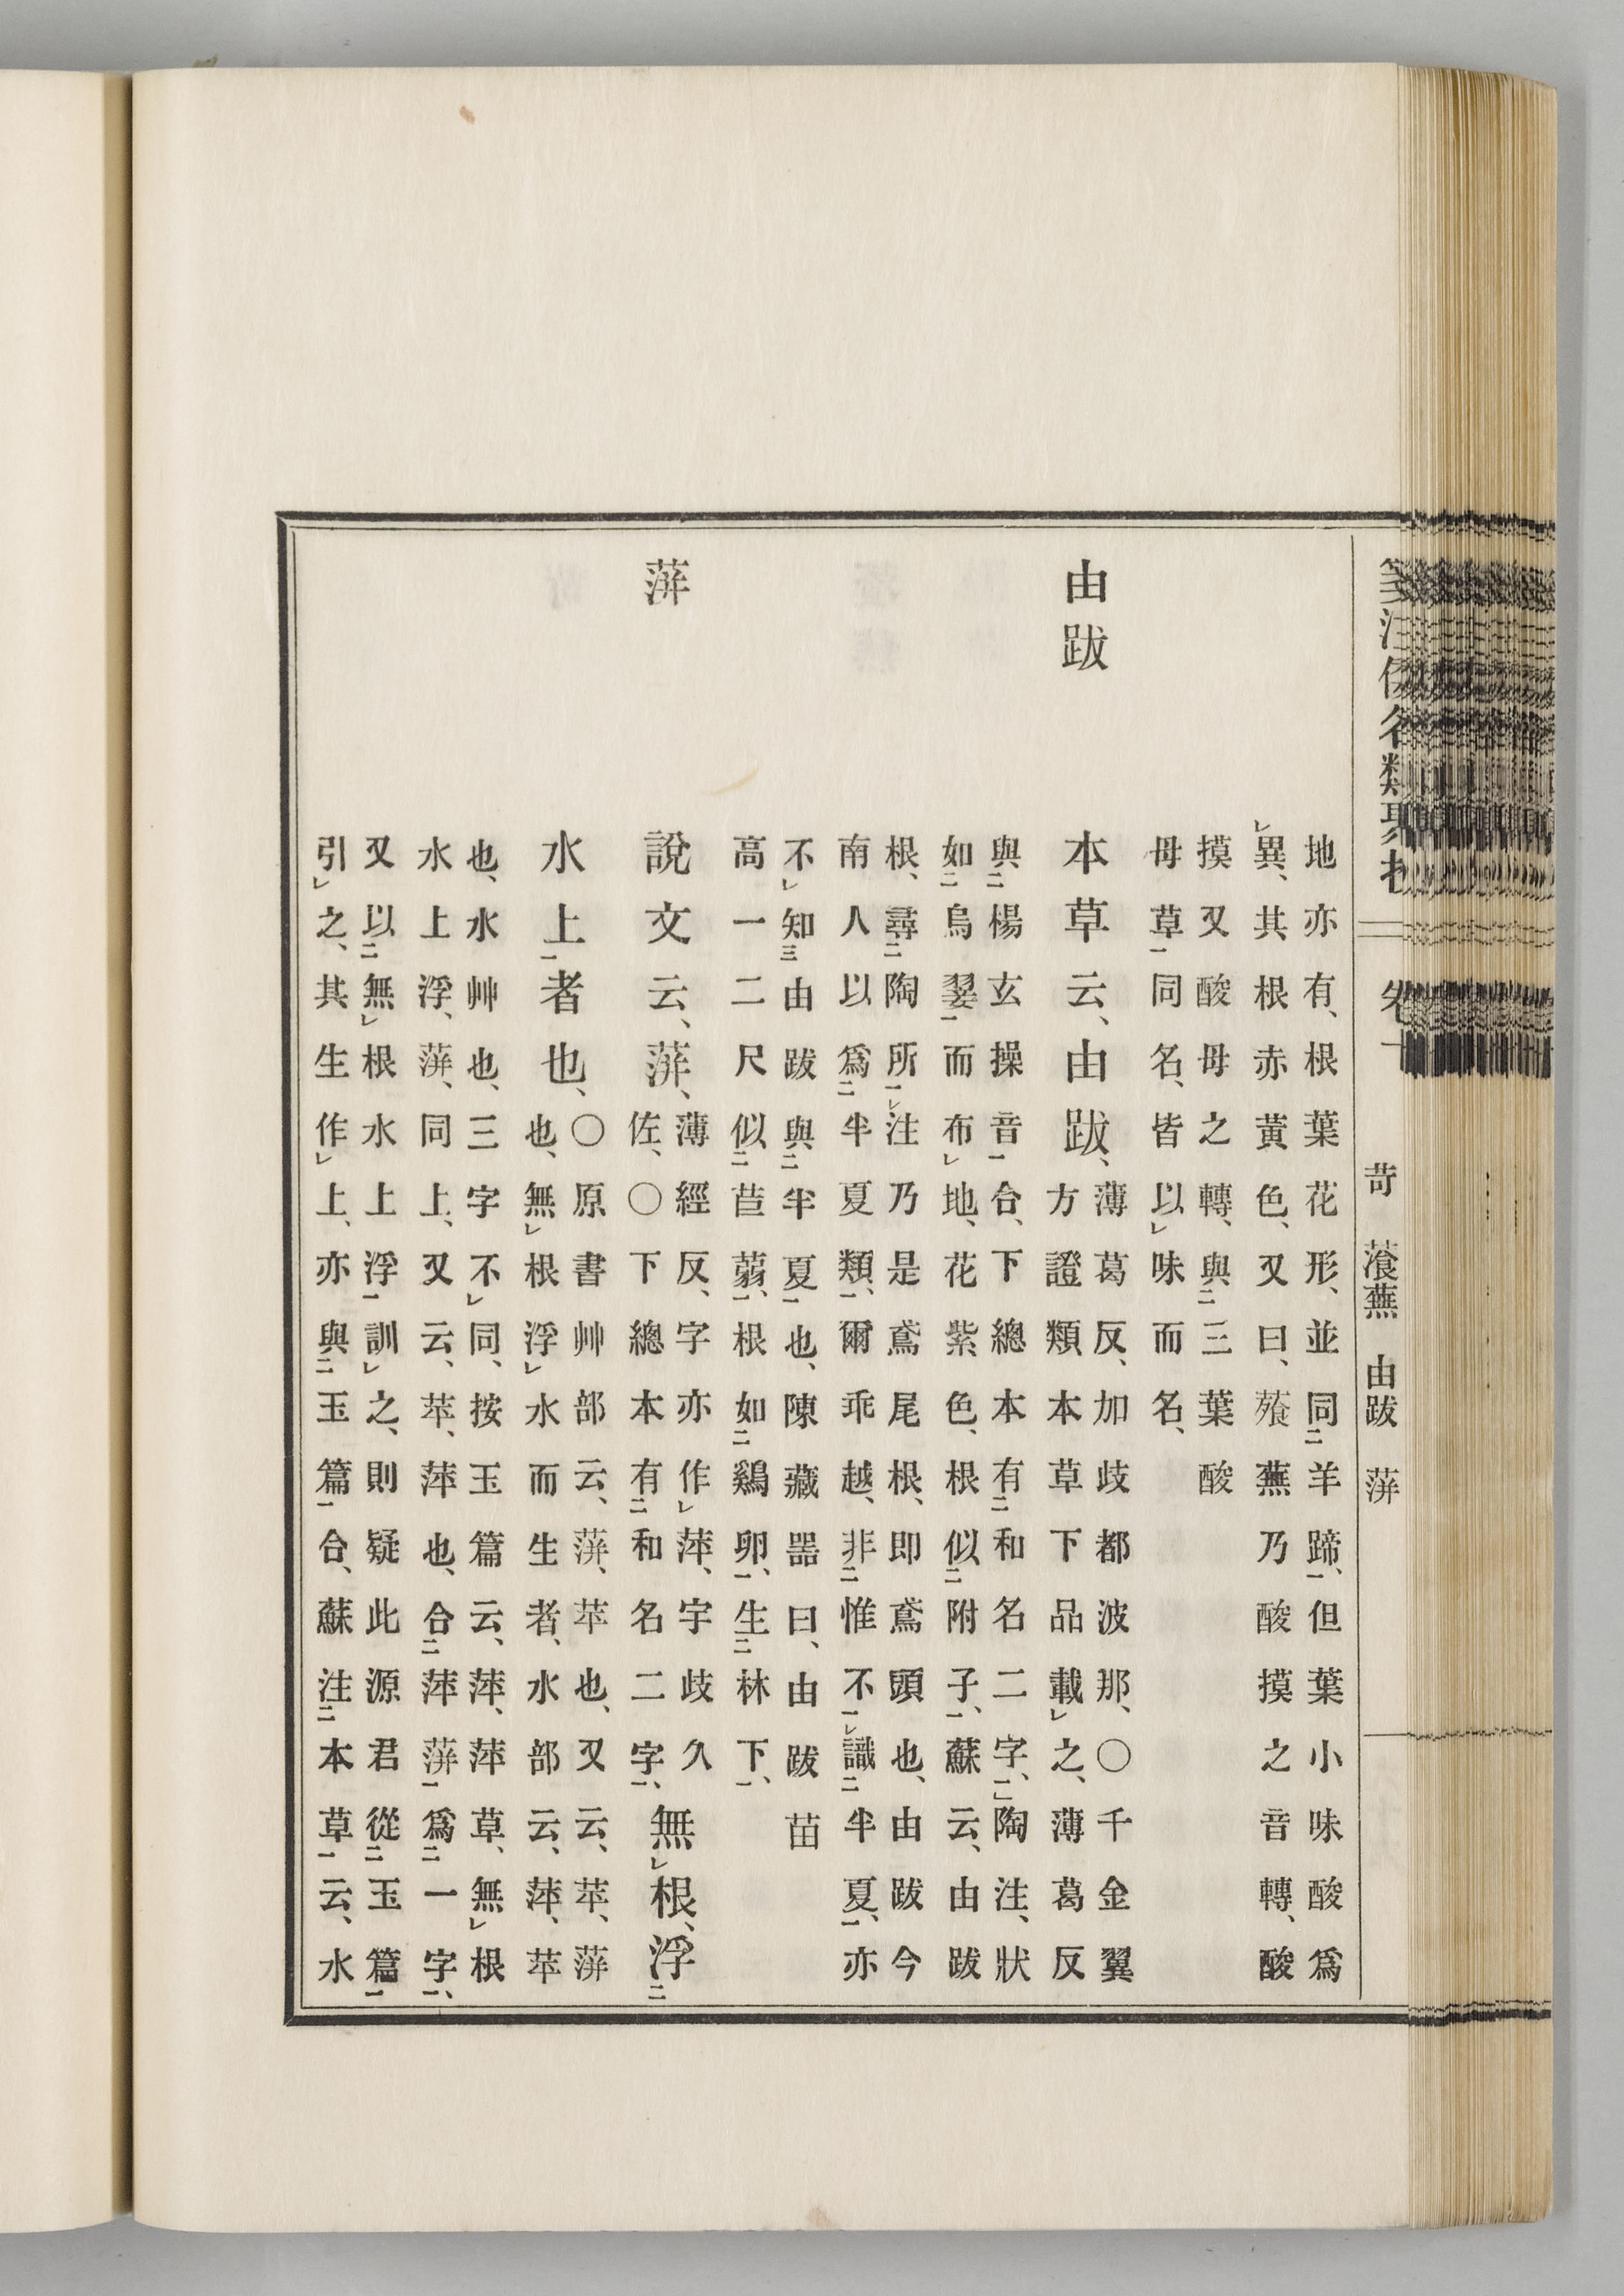 箋注倭名類聚抄 卷十 苛 蕵蕪 由跋 蓱
地亦有、根葉花形、並同㆓羊蹄㆒、但葉小味酸爲
㆑異、其根赤黃色、又曰、蕵蕪乃酸摸之音轉、酸
摸又酸母之轉、與㆓三葉酸
母草㆒同名、皆以㆑味而名、
由跋 本草云、由跋、
薄葛反、加歧都波那、〇千金翼
方證類本草下品載㆑之、薄葛反
與㆓楊玄操音㆒合、下總本有㆓和名二字㆒、陶注、狀
如㆓烏翣㆒而布㆑地、花紫色、根似㆓附子㆒、蘇云、由跋
根、尋㆓陶所㆒㆑注乃是鳶尾根、即鳶頭也、由跋今
南人以爲㆓半夏類㆒、爾乖越、非㆓惟不㆒㆑識㆓半夏㆒、亦
不㆑知㆔由跋與㆓半夏㆒也、陳藏器曰、由跋苗
高一二尺似㆓苣蒻㆒、根如㆓鷄卵㆒、生㆓林下㆒、
蓱 說文云、蓱、
薄經反、字亦作㆑萍、宇歧久
佐、〇下總本有㆓和名二字㆒、
無㆑根、浮㆓
水上㆒者也、
〇原書艸部云、蓱、苹也、又云、苹、蓱
也、無㆑根浮㆑水而生者、水部云、萍、苹
也、水艸也、三字不㆑同、按玉篇云、萍、萍草、無㆑根
水上浮、蓱、同上、又云、苹、萍也、合㆓萍蓱㆒爲㆓一字㆒、
又以㆓無㆑根水上浮㆒訓㆑之、則疑此源君從㆓玉篇㆒
引㆑之、其生作㆑上、亦與㆓玉篇㆒合、蘇注㆓本草㆒云、水